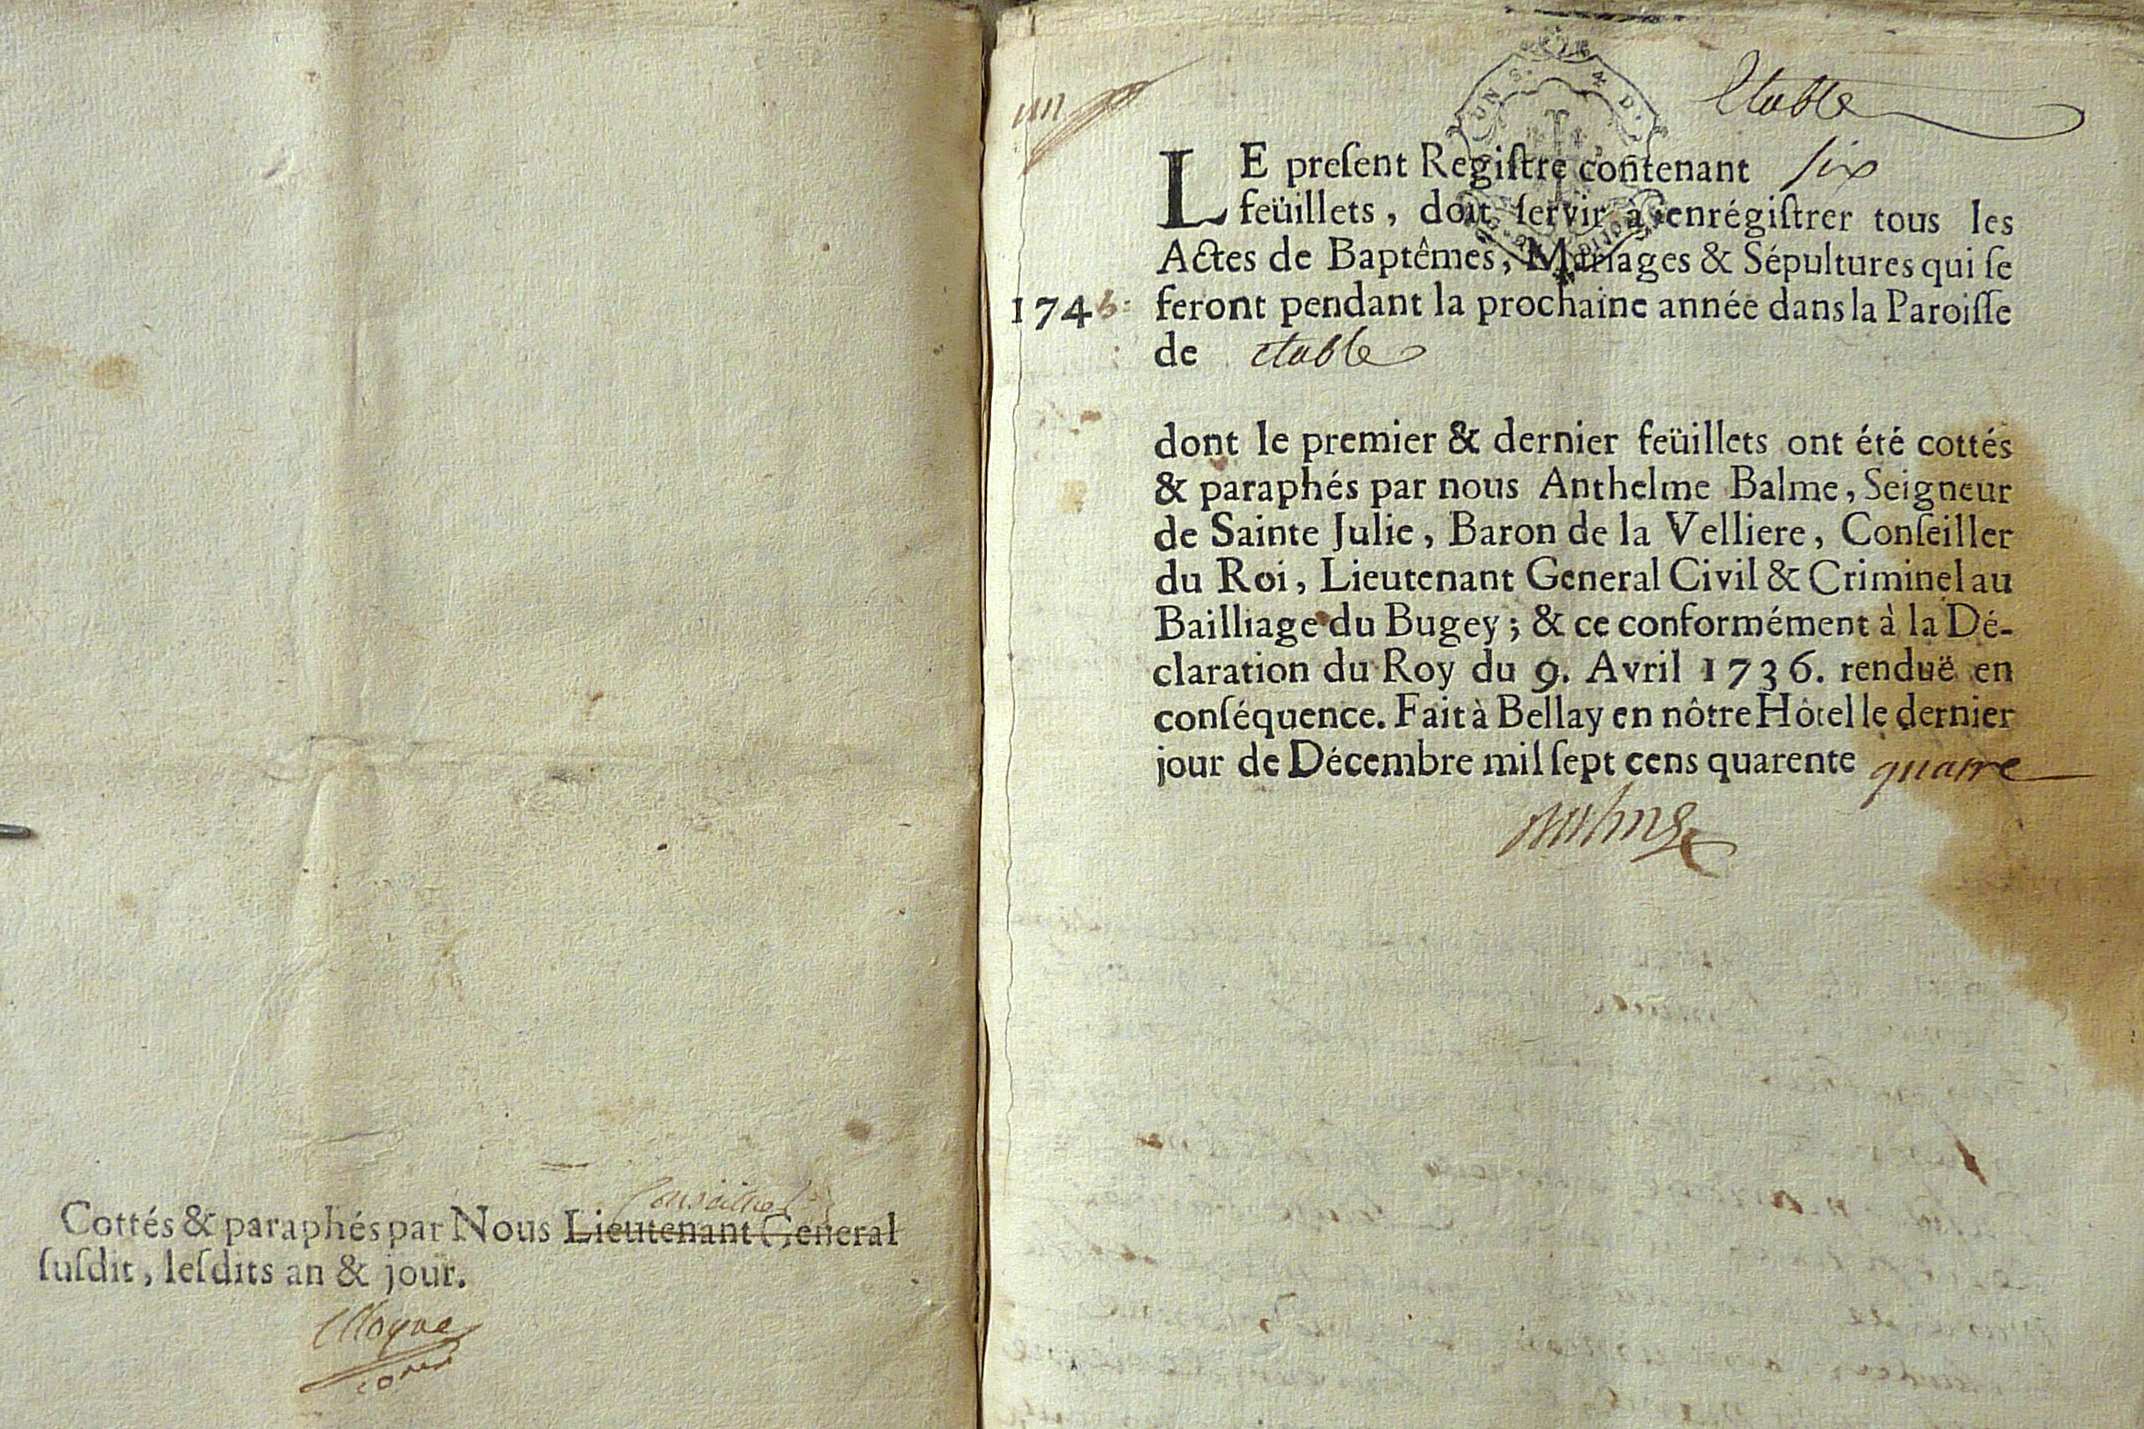 Conseiller
Cottés & paraphés par Nous Lieutenant General
ſuſdit, leſdits an & jour.
etable
LE preſent Regiſtre contenant six
feüillets, doit ſervir à enrégiſtrer tous les
Actes de Baptêmes, Mariages & Sépultures qui ſe
1745 feront pendant la prochaine année dans la Paroiſſe
de etable
dont le premier & dernier feüillets ont été cottés
& paraphés par nous Anthelme Balme, Seigneur
de Sainte Julie, Baron de la Velliere, Conſeiller
du Roi, Lieutenant General Civil & Criminel au
Bailliage du Bugey; & ce conformément à la Dé-
claration du Roy du 9. Avril 1736. renduë en
conſéquence. Fait à Bellay en nôtre Hôtel le dernier
jour de Décembre mil ſept cens quarente quatre